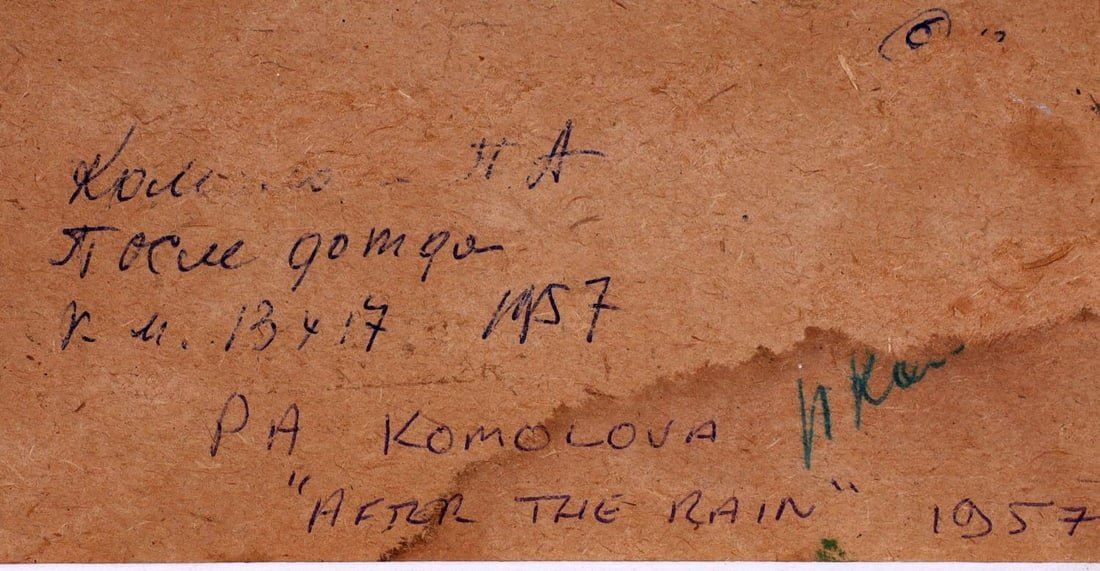 П. А
После дождя
к. м. 13 х 17 1957
P A KOMOLOVA
"AFTER THE RAIN" 1957